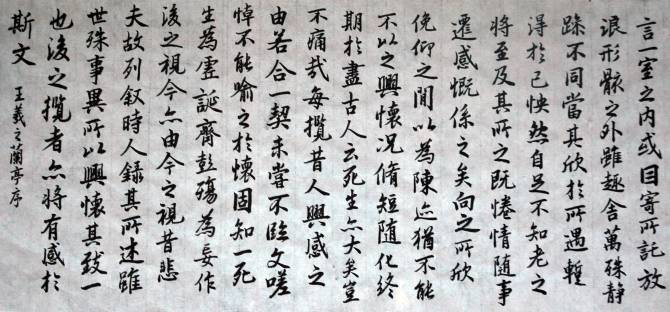 言一室之内或因寄所託放
浪形骸之外雖趣舍萬殊静
躁不同當其欣於所遇暫
得於己怏然自足不知老之
將至及其所之既惓情随事
遷感慨係之矣向之所欣
俛仰之間以為陳迹猶不能
不以之興懷况脩短随化終
期於盡古人云死生亦大矣豈
不痛哉每攬昔人興感之
由若合一契未嘗不臨文嗟
悼不能喻之於懷固知一死
生為虚誕齊彭殤為妄作
後之視今亦由今之視昔悲
夫故列叙時人録其所述雖
世殊事異所以興懷其致一
也後之攬者亦將有感於
斯文 王羲之蘭亭序